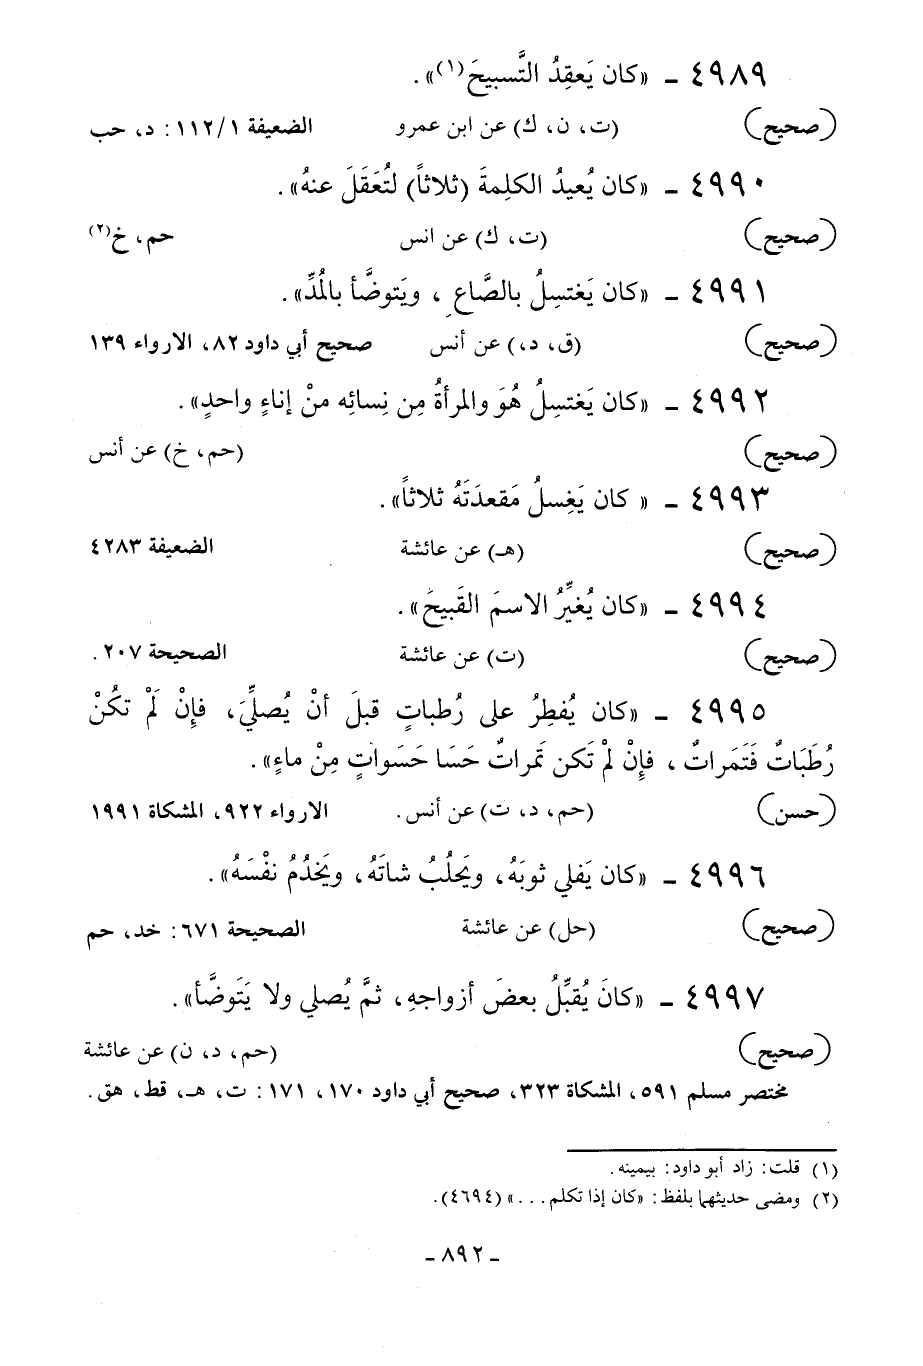 ٤٩٨٩ ـ «كان يَعقِدُ التَّسبيحَ(١)».
(صحيح) (ت، ن، ك) عن ابن عمرو الضعيفة ١/١١٢: د، حب
٤٩٩٠ ـ «كان يُعيدُ الكلِمةَ (ثلاثاً) لتُعَقَلَ عنهُ».
(صحيح) (ت، ك) عن انس حم، خ(٢)
٤٩٩١ ـ «كان يَغتسِلُ بالصَّاعِ، ويَتوضَّأ بالمُدِّ».
(صحيح) (ق، د،) عن أنس صحيح أبي داود ٨٢، الارواء ١٣٩
٤٩٩٢ ـ «كان يَغتسِلُ هُوَ والمرأةُ مِن نِسائِه منْ إناءٍ واحدٍ».
(صحيح) (حم، خ) عن أنس
٤٩٩٣ ـ « كان يَغسِلُ مَقعدَتَهُ ثلاثاً».
(صحيح) (هـ) عن عائشة الضعيفة ٤٢٨٣
٤٩٩٤ ـ «كان يُغيِّرُ الاسمَ القَبيحَ».
(صحيح) (ت) عن عائشة الصحيحة ٢٠٧.
٤٩٩٥ ـ «كان يُفطِرُ على رُطباتٍ قبلَ أنْ يُصلِّيَ، فإنْ لَمْ تكُنْ
رُطَبَاتٌ فَتَمَراتٌ، فإنْ لمْ تَكن تَمراتٌ حَسَا حَسَواتٍ مِنْ ماءٍ».
(حسن) (حم، د، ت) عن أنس. الارواء ٩٢٢، المشكاة ١٩٩١
٤٩٩٦ ـ «كان يَفلي ثوبَهُ، ويَحلُبُ شاتَهُ، ويَخدُمُ نفْسَهُ».
(صحيح) (حل) عن عائشة الصحيحة ٦٧١: خد، حم
٤٩٩٧ ـ «كانَ يُقبِّلُ بعضَ أزواجهِ، ثمَّ يُصلي ولا يَتَوضَّأ».
(صحيح) (حم، د، ن) عن عائشة
مختصر مسلم ٥٩١، المشكاة ٣٢٣، صحيح أبي داود ١٧٠، ١٧١: ت، هـ، قط، هق.
(١) قلت: زاد أبو داود: بيمينه.
(٢) ومضى حديثهما بلفظ: «كان إذا تكلم...» (٤٦٩٤).
ـ ٨٩٢ ـ